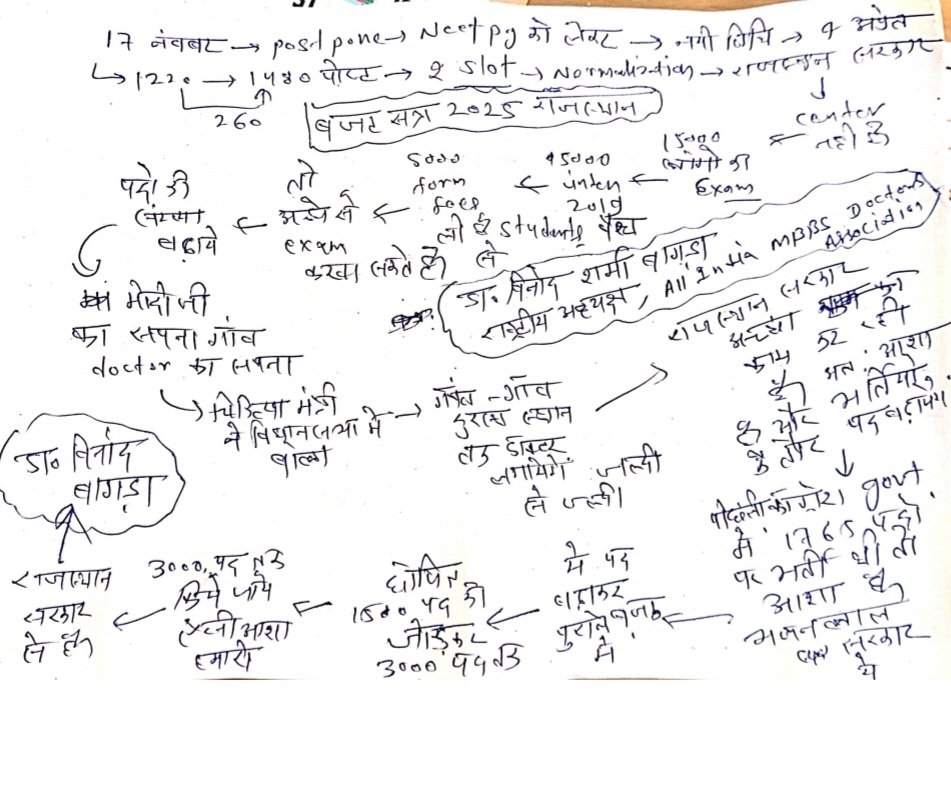 17 नंवबर → postpone → Neet pg को लेकर → नयी तिथि → 9 अप्रेल
↳ 1220 → 1480 पोस्ट → 2 slot → Normalization → राजस्थान सरकार
260
बजट सत्र 2025 राजस्थान
↓
center
नही है
←
15000
लोगो का
Exam
←
45000
intern
2019
←
5000
form
fees
ली है students पैसा
से
←
तो
अच्छे से
exam
करवा सकते है।
←
पदो की
संख्या
बढ़ाये
मोदी जी
का सपना गांव
doctor का सपना
डा॰ विनोद शर्मा बागड़ा
राष्ट्रीय अध्यक्ष, All India MBBS Doctors
Association
↳ चिकित्सा मंत्री
ने विधानसभा मे
बोला
→
गाँव-गाँव
दुरस्थ स्थान
तक डाक्टर
लगायेगे जल्दी
से जल्दी।
→
राजस्थान सरकार
अच्छा का
काम कर रही
है। अत: आशा
है और भर्तियो
के तौर पद बढ़ायेगे
↓
पीछली कांग्रेस govt.
मे 1765 पदो
पर भर्ती थी तो
आशा है
भजनलाल
सरकार
ये
←
मे पद
बढ़ाकर
पुराने बजट
मे
←
घोषित
1500 पद को
जोड़कर
3000 पद तक
←
3000 पद तक
किये जाये
ऐसी आशा
हमारी
←
राजस्थान
सरकार
से है।
डा॰ विनोद
बागड़ा